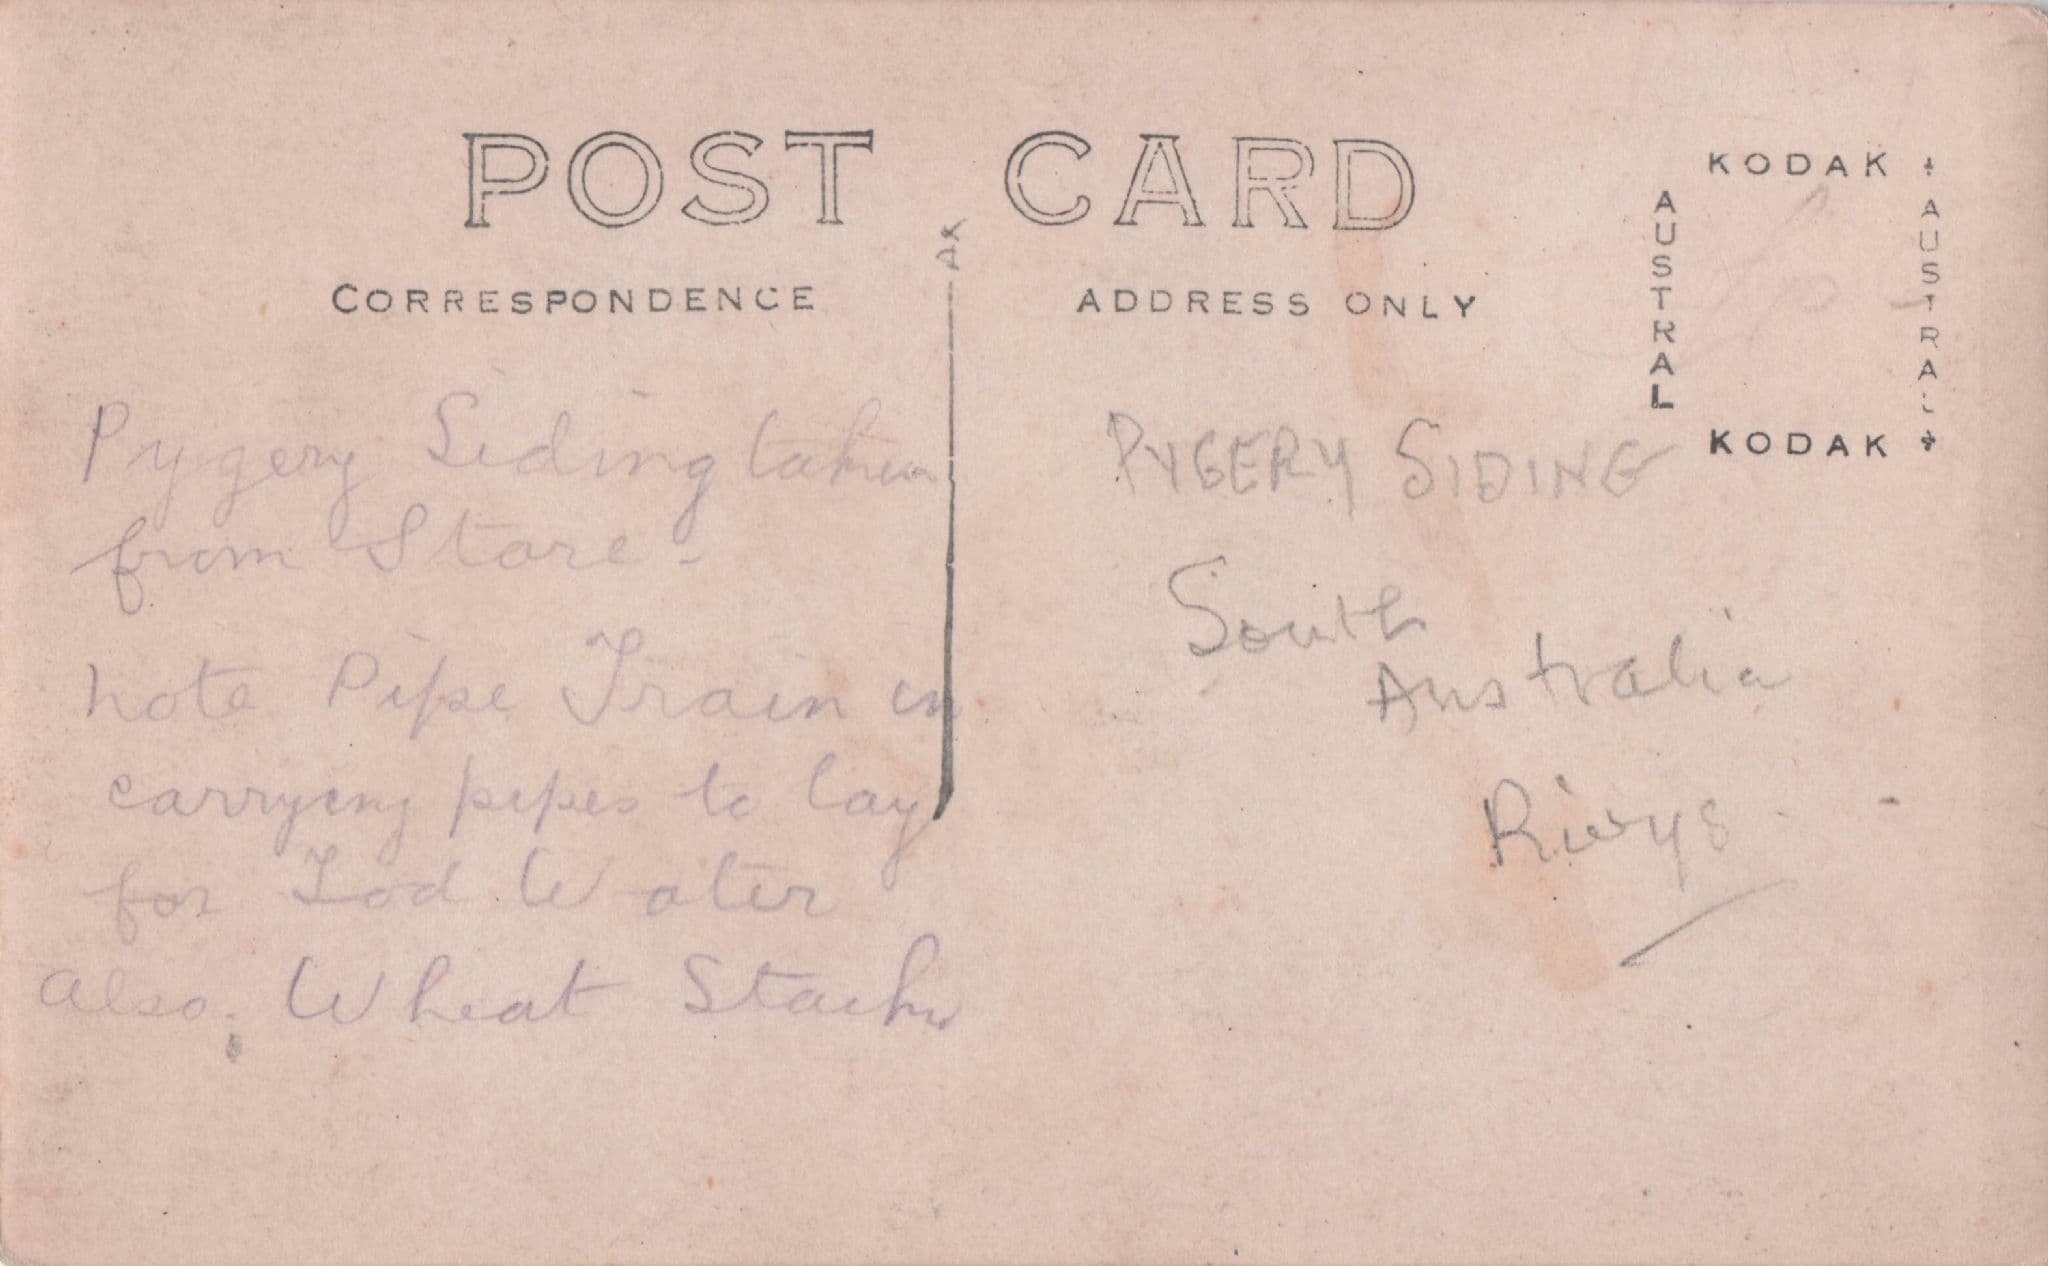 POST CARD
CORRESPONDENCE
ADDRESS ONLY
KODAK
AUSTRAL
AUSTRAL
KODAK
Pygery Siding taken
from Store -
note Pipe Train in
carrying pipes to lay
for Tod Water
also. Wheat Stacks
PYGERY SIDING
South
Australia